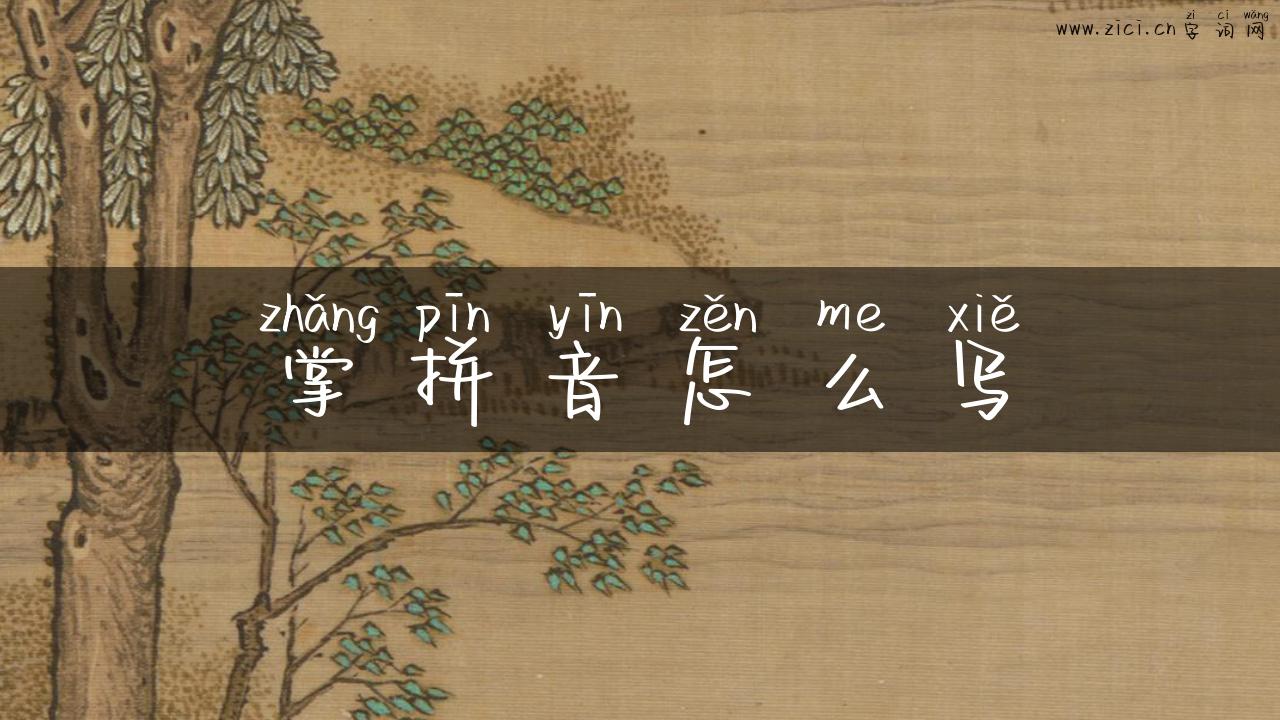 zì cí wǎng
www.zici.cn 字 词 网
zhǎng pīn yīn zěn me xiě
掌 拼 音 怎 么 写